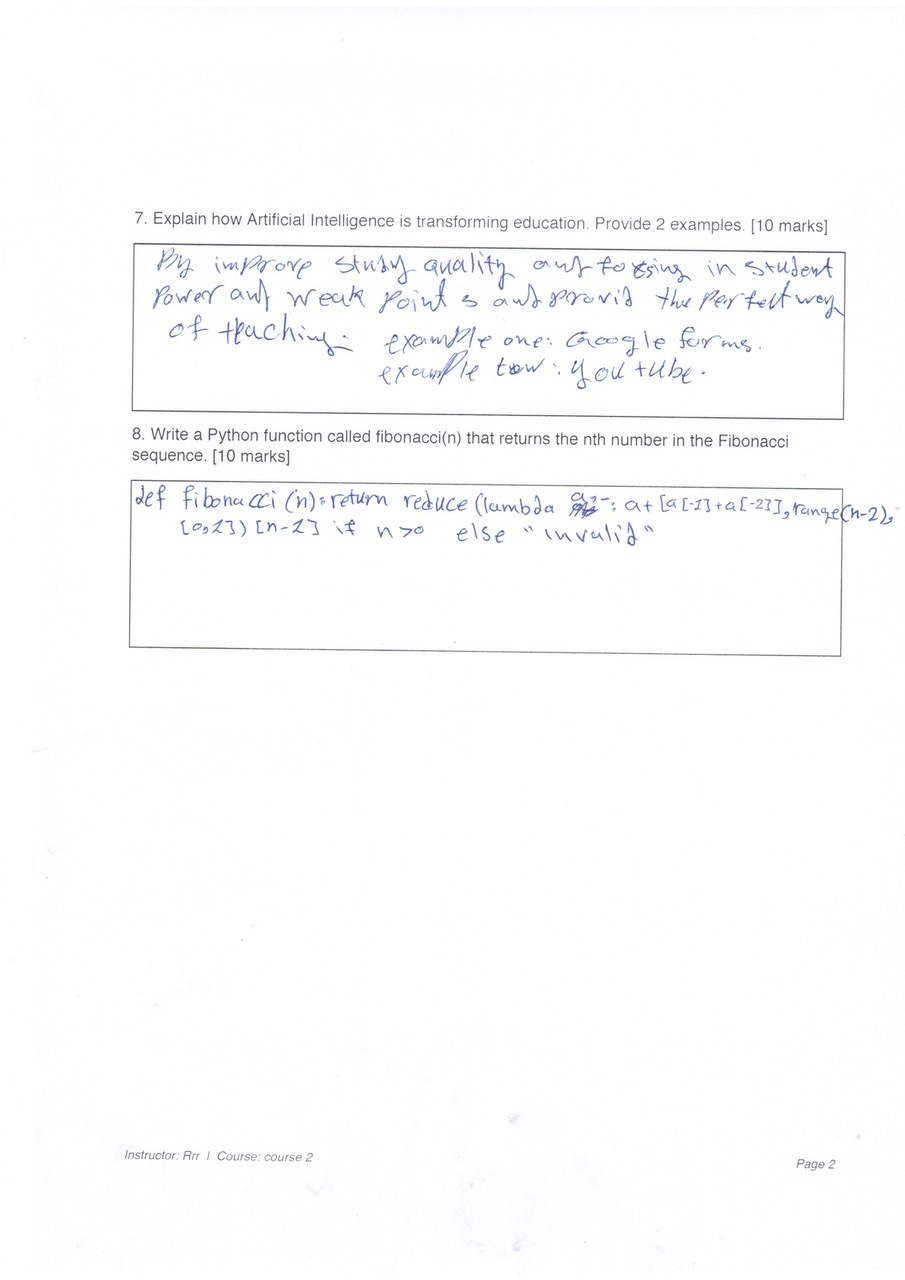 7. Explain how Artificial Intelligence is transforming education. Provide 2 examples. [10 marks]
By improve study quality and focsing in student
Power and weak Point s and provid the Perfect way
of teaching. example one: Google forms.
example tow: you tube.
8. Write a Python function called fibonacci(n) that returns the nth number in the Fibonacci
sequence. [10 marks]
def fibonacci (n): return reduce (lambda a,_: a+[a[-1]+a[-2]], range(n-2),
[0,1]) [n-1] if n>0 else "invalid"
Instructor: Rrr | Course: course 2
Page 2